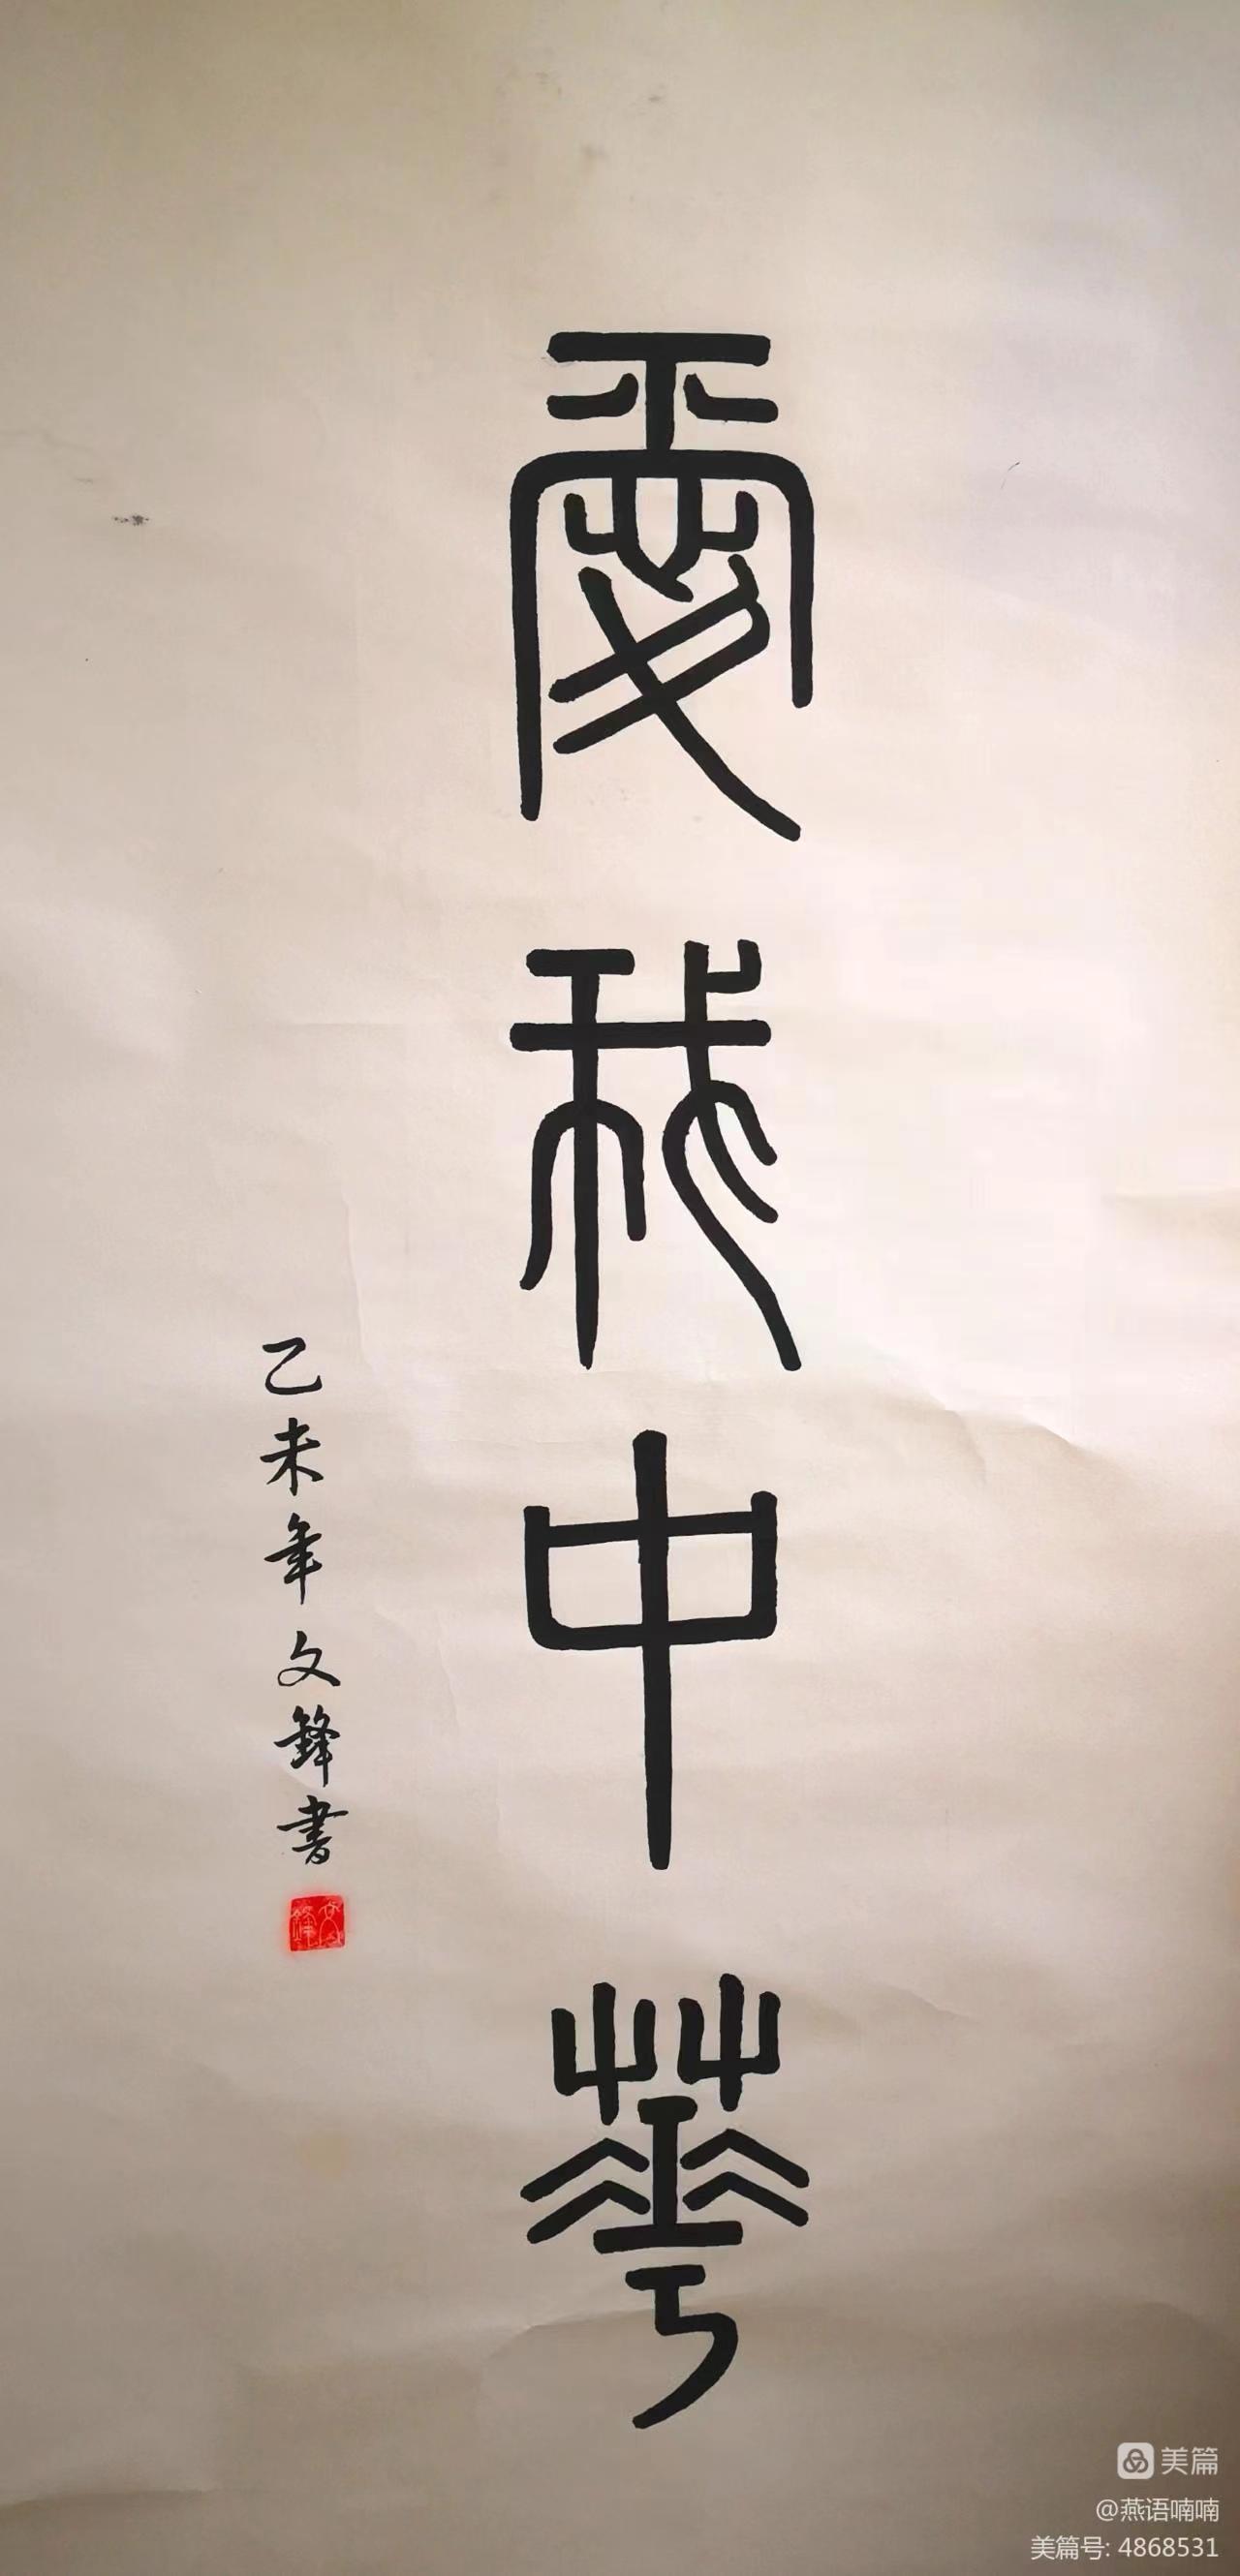 愛我中華
乙未年文鋒書
文鋒
美篇
@燕语喃喃
美篇号: 4868531